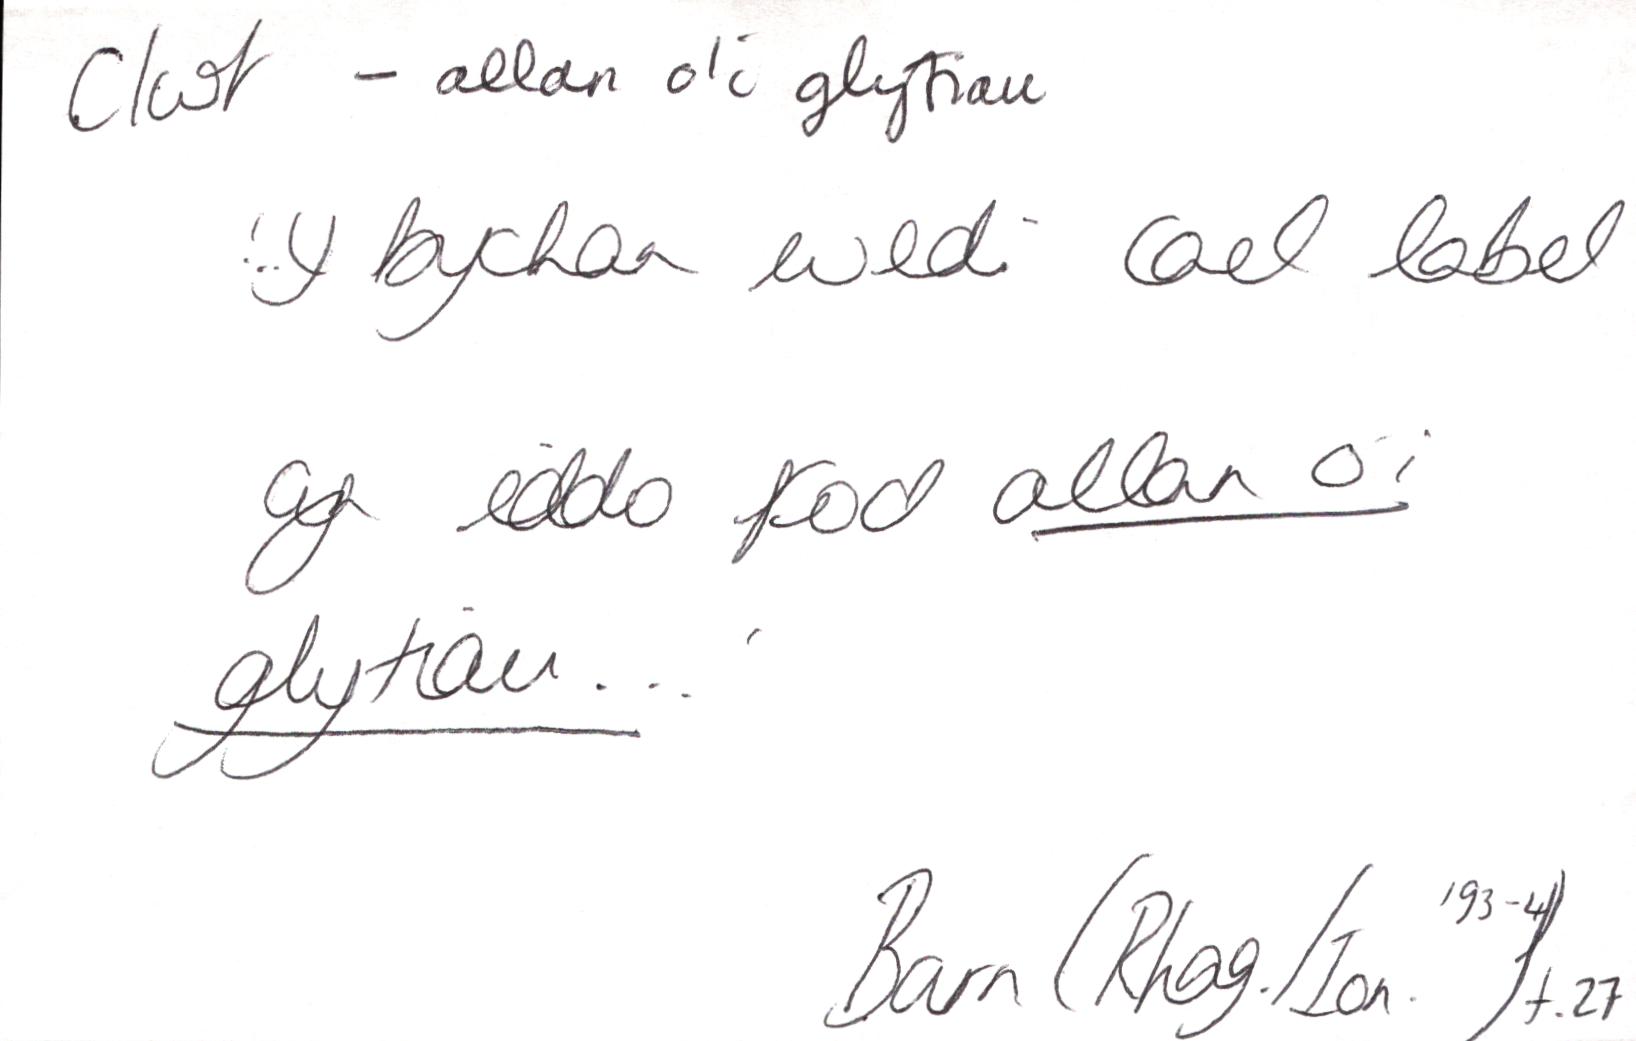 Clwt - allan o'i glytiau
'...Y bychan wedi cael label
cyn iddo fod allan o'i
glytiau....'
Barn (Rhag./Ion. '93-4) t.27